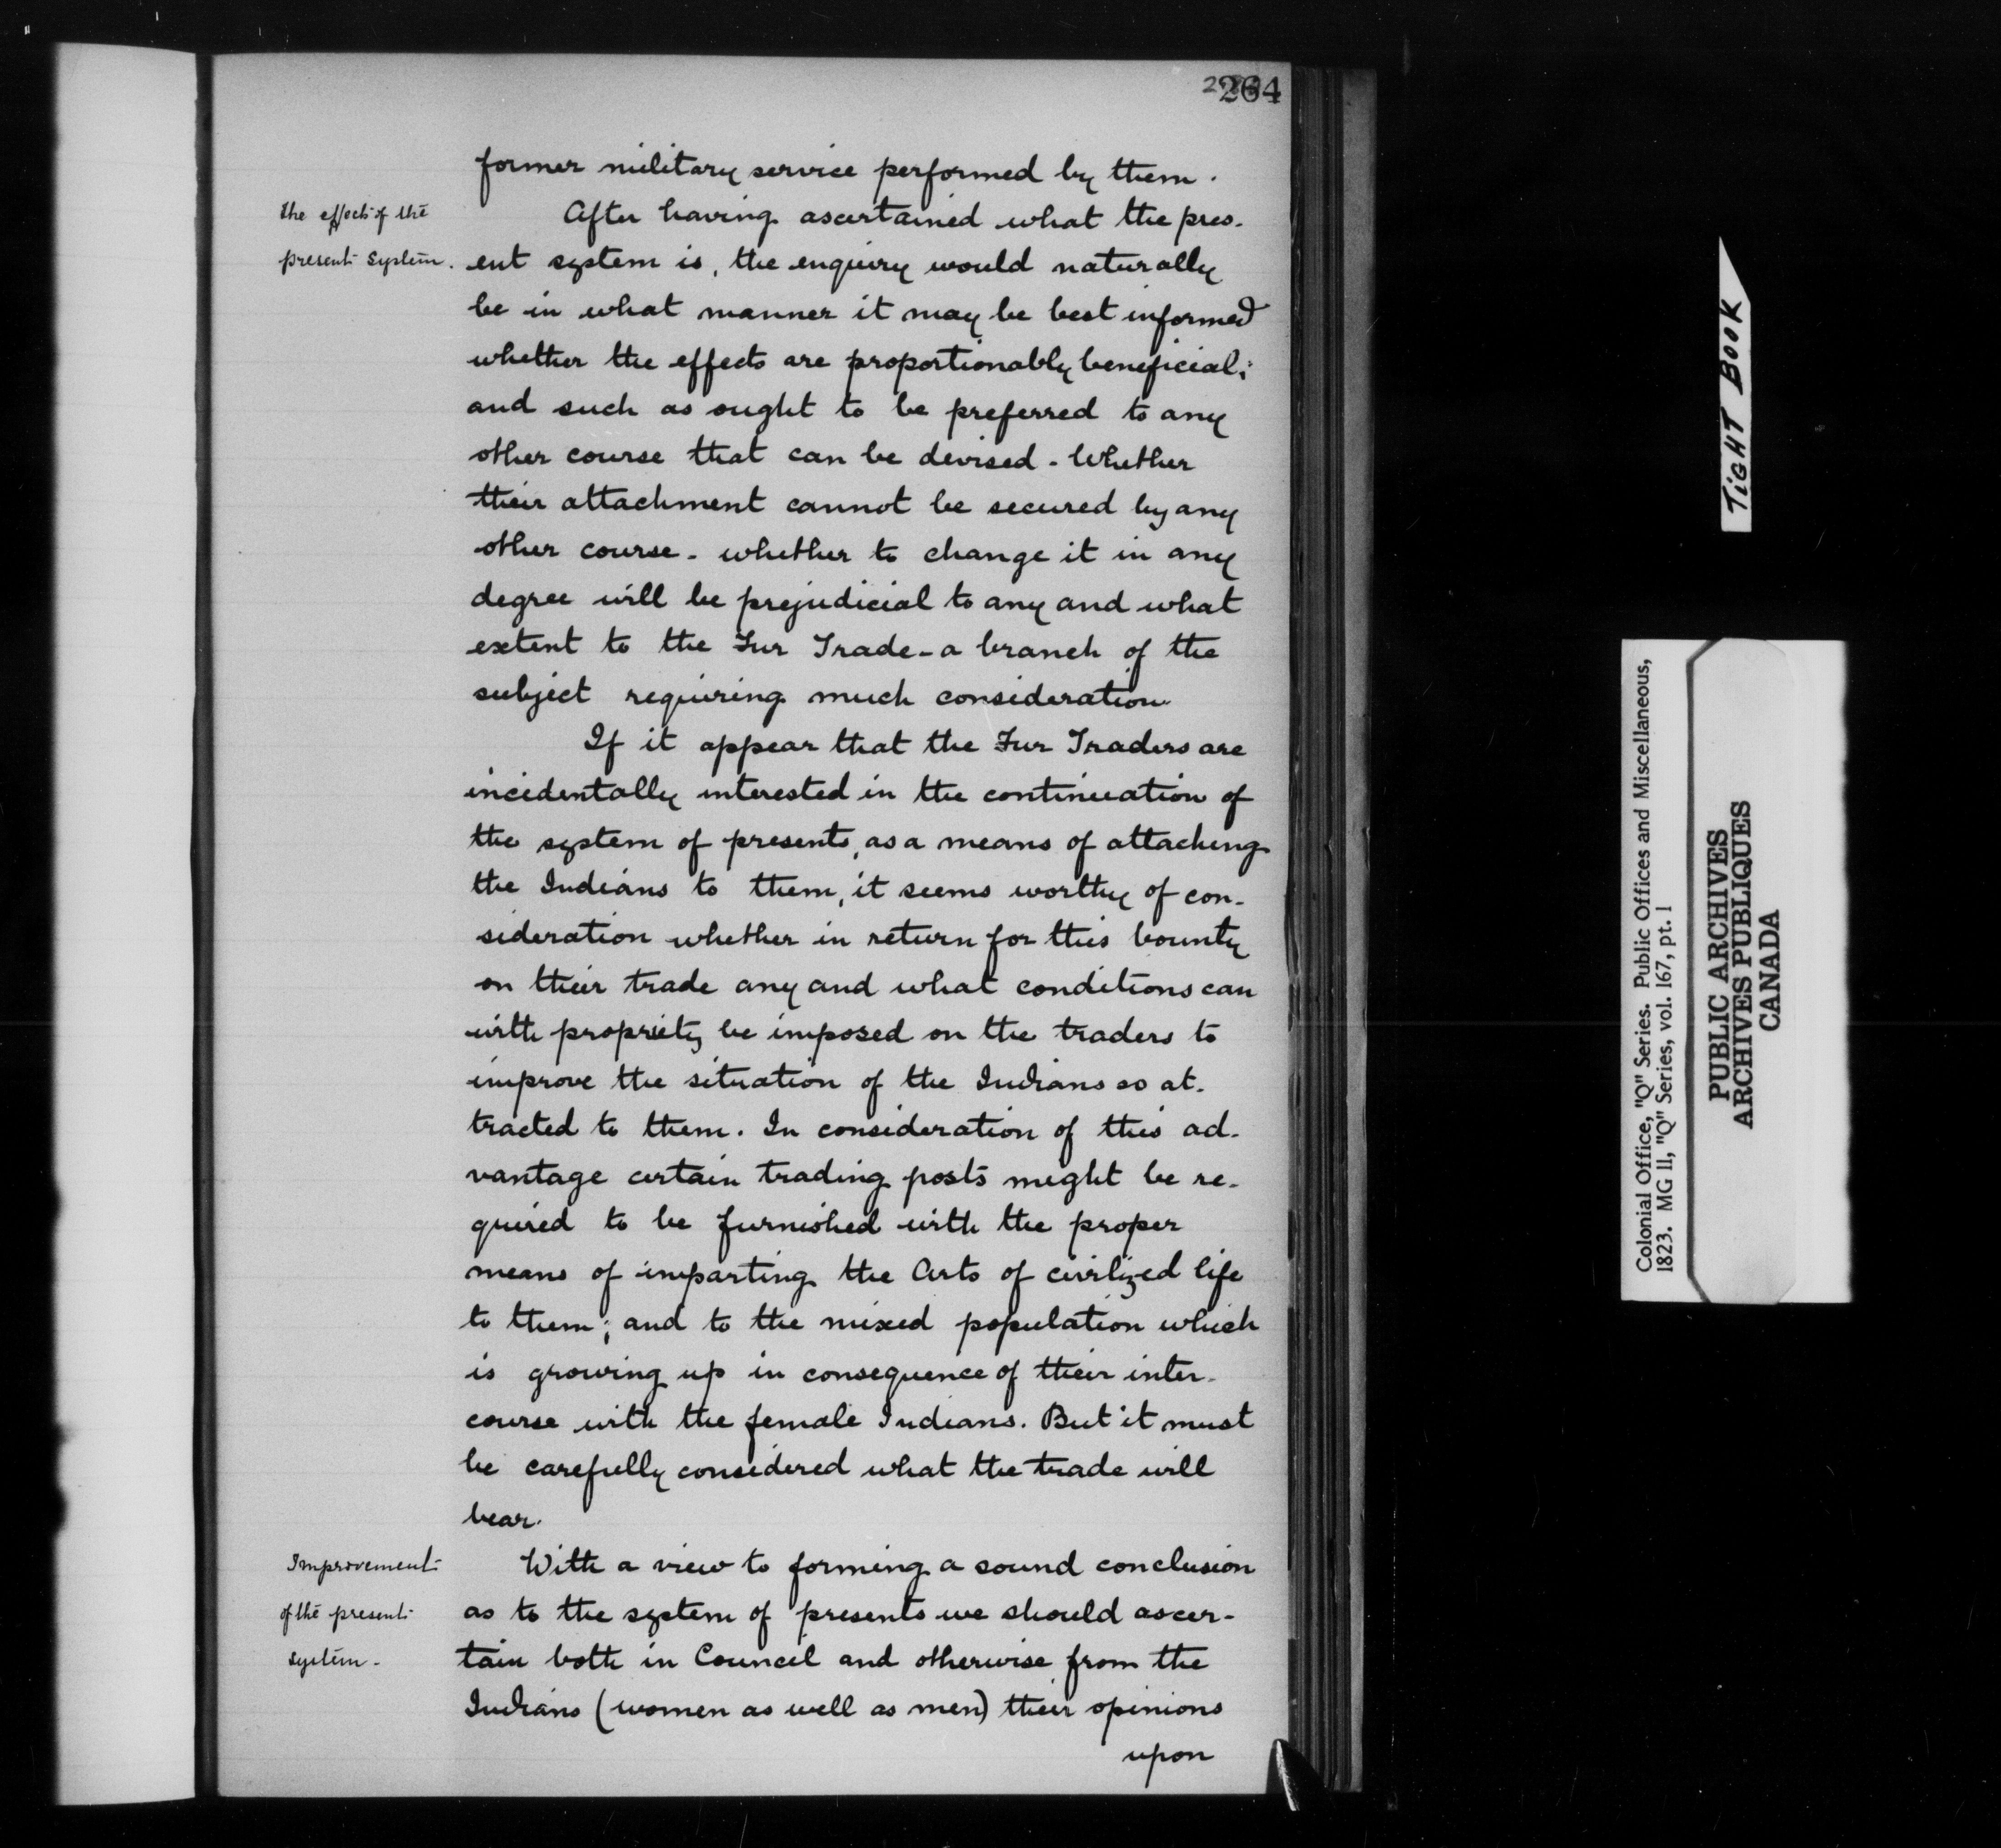 264
former military service performed by them.
the effect of the
present system.
After having ascertained what the pres-
ent system is, the enquiry would naturally
be in what manner it may be best informed
whether the effects are proportionably beneficial;
and such as ought to be preferred to any
other course that can be devised - Whether
their attachment cannot be secured by any
other course - whether to change it in any
degree will be prejudicial to any and what
extent to the Fur Trade - a branch of the
subject requiring much consideration
If it appear that the Fur Traders are
incidentally interested in the continuation of
the system of presents, as a means of attaching
the Indians to them, it seems worthy of con-
sideration whether in return for this bounty
on their trade any and what conditions can
with propriety be imposed on the traders to
improve the situation of the Indians so at-
tracted to them. In consideration of this ad-
vantage certain trading posts might be re-
quired to be furnished with the proper
means of imparting the Arts of civilized life
to them; and to the mixed population which
is growing up in consequence of their inter-
course with the female Indians. But it must
be carefully considered what the trade will
bear.
Improvement
of the present
system -
With a view to forming a sound conclusion
as to the system of presents we should ascer-
tain both in Council and otherwise from the
Indians (women as well as men) their opinions
upon
TIGHT BOOK
Colonial Office, "Q" Series. Public Offices and Miscellaneous,
1823. MG 11, "Q" Series, vol. 167, pt. 1
PUBLIC ARCHIVES
ARCHIVES PUBLIQUES
CANADA